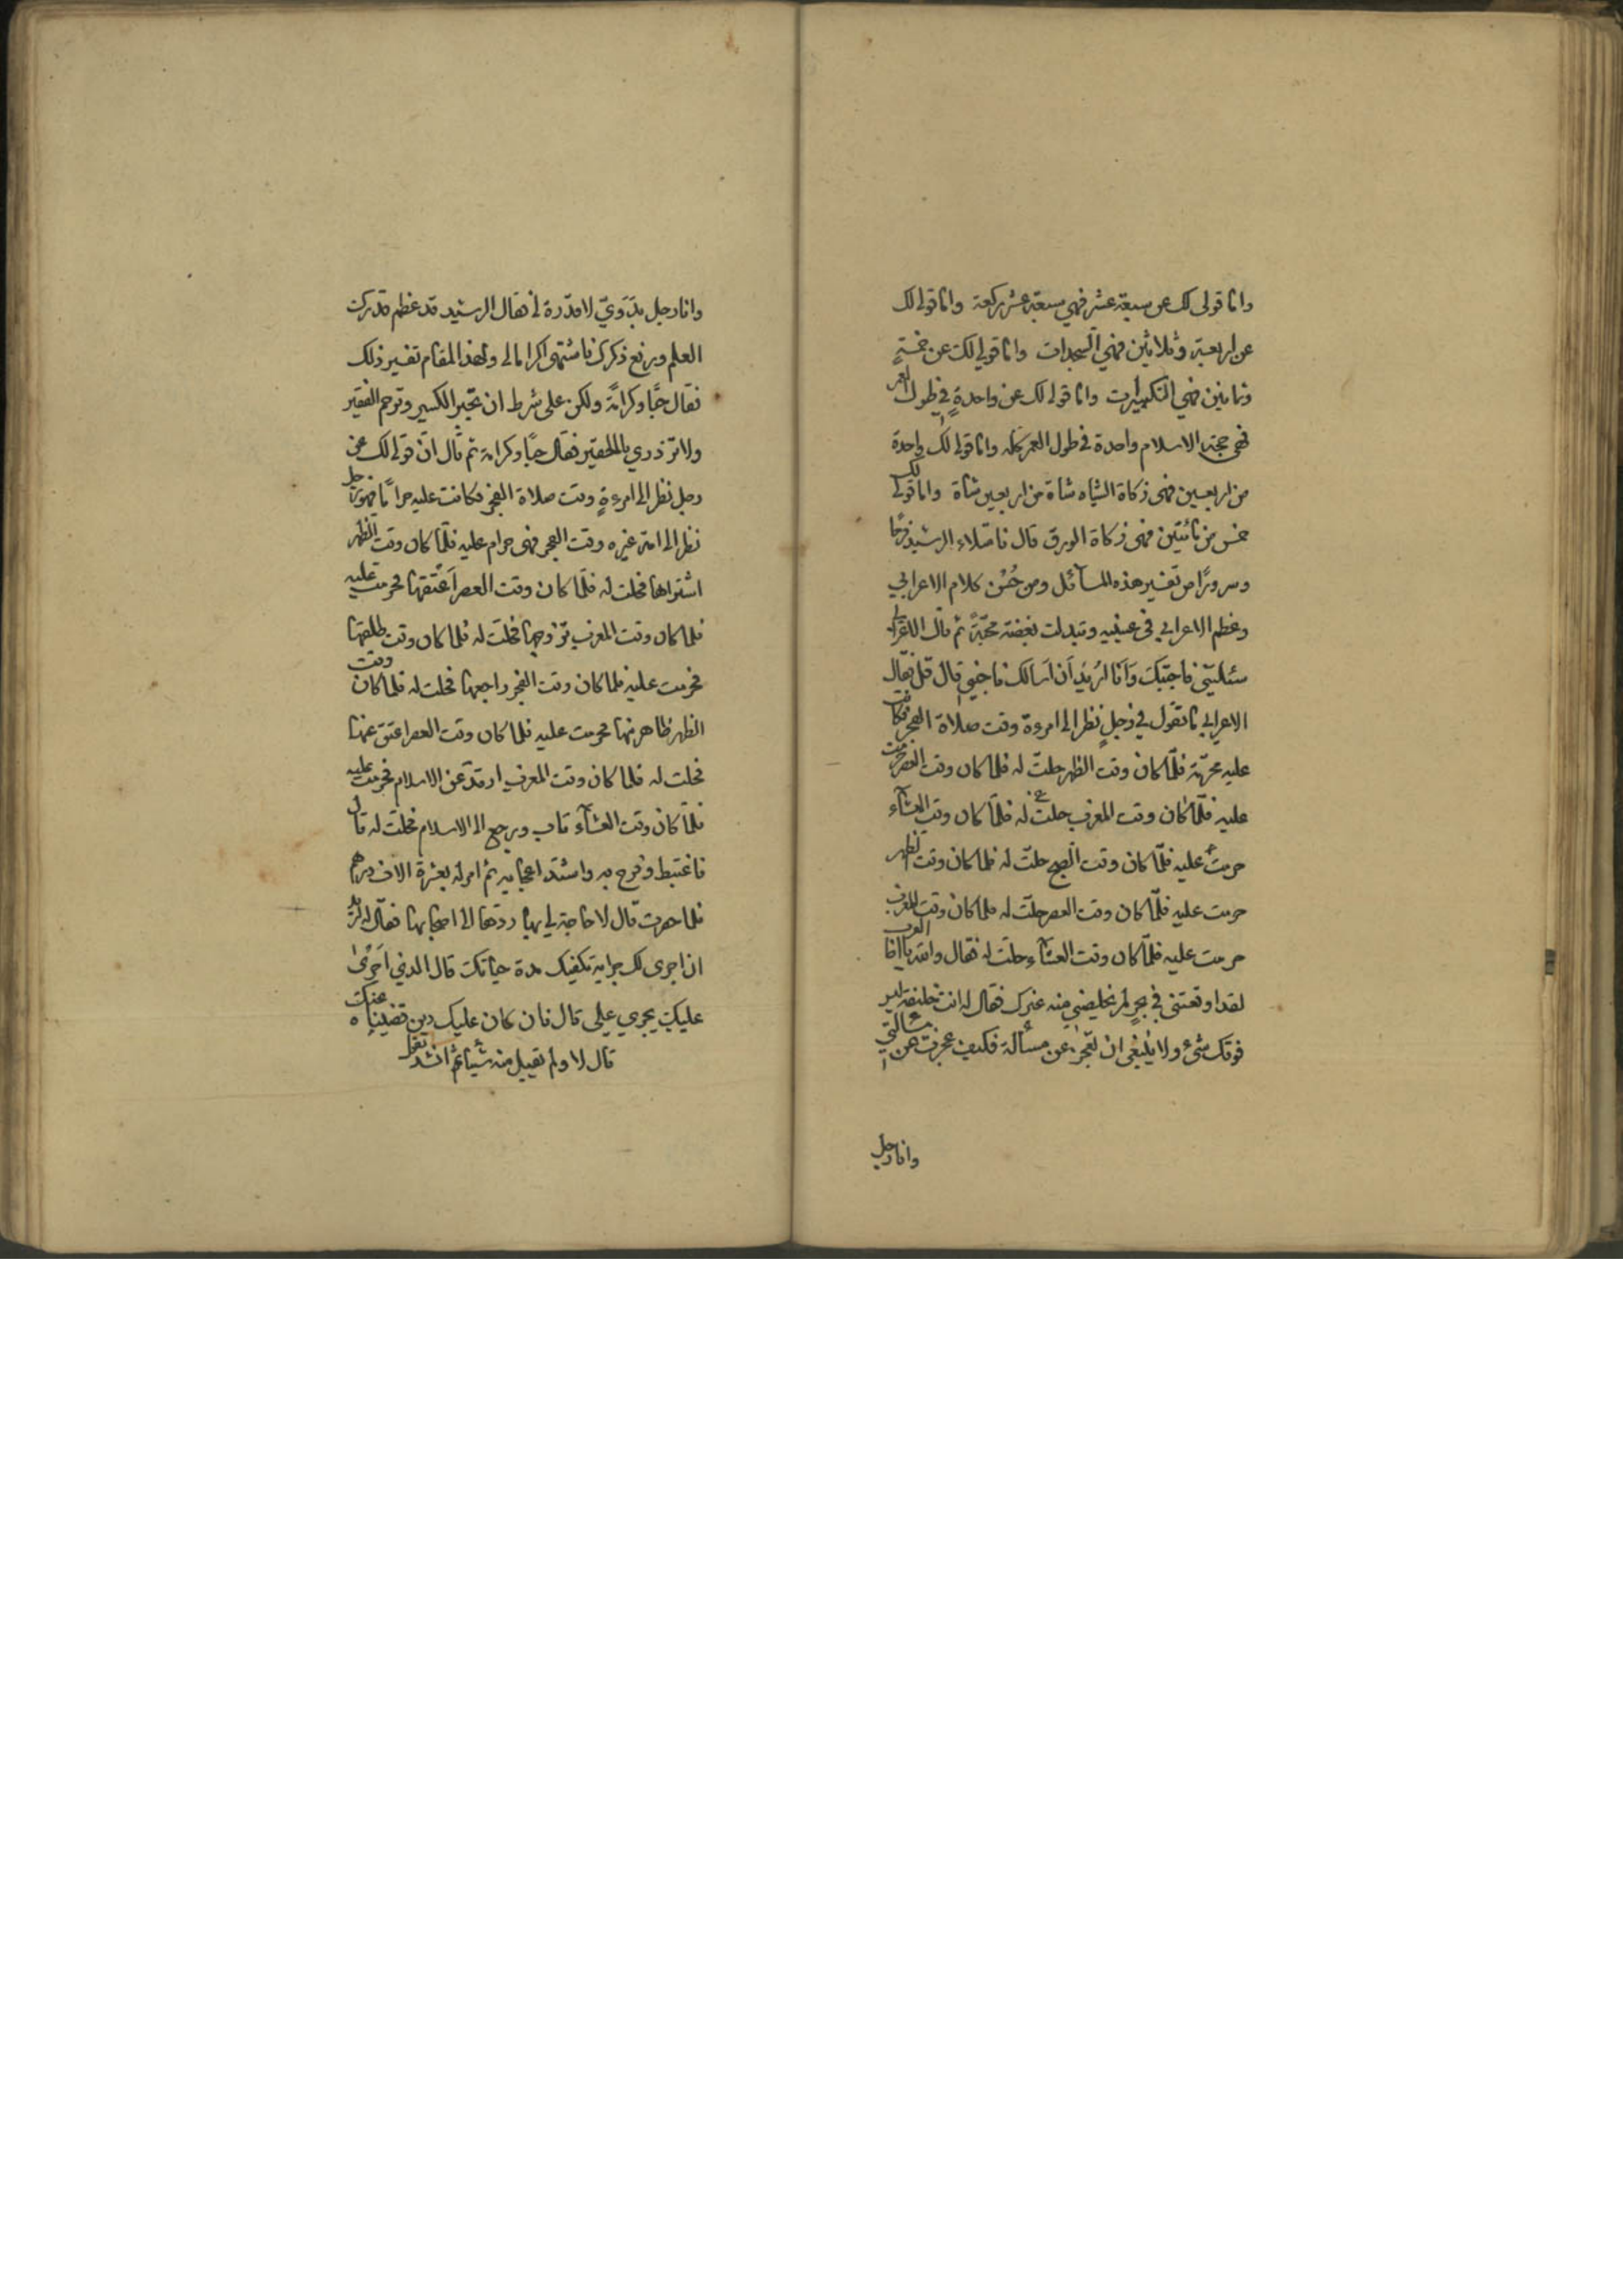 واما قولى لك عن سبعة عشر فهي سبعة عشر ركعة واما قولى لك
عن اربعة وثلاثين فهي السجدات واما قولى لك عن خمسة
وتمانين فهي التكبيرات واما قولى لك عن واحدة في طول العمر
فهى حجة الاسلام واحدة في طول العمر كله واما قولى لك واحدة
من اربعين فهى زكاة الشياه شاة من اربعين شاة واما قولى لك
خمس من مائتين فهى زكاة الورق قال فامتلاء الرشيد فرحًا
وسرورًا من تفسير هذه المسآئل ومن حُسْن كلام الاعرابي
وعظم الاعرابي فى عينيه وتبدلت بغضته محبّةً ثم قال الاعرابى
سئلتنى فاجبتك وَاَنَا اُريد اَن اَسالك فاجبنى قال قل فقال
الاعرابي ما تقول في رجلٍ نظر الى امرءة وقت صلاة الفجر فكانت
عليه محرّمة فلمّا كان وقت الظهر حلتّ له فلما كان وقت العصر حرمت
عليه فلمّا كان وقت المغرب حلتّ له فلمّا كان وقت العشآء
حرمت عليه فلمّا كان وقت الصبح حلتّ له فلما كان وقت الظهر
حرمت عليه فلمّا كان وقت العصر حلتّ له فلما كان وقت المغرب
حرمت عليه فلمّا كان وقت العشآء حلتّ له فقال والله يا اخا العرب
لقد اوقعتنى في بحرٍ لم يخلصني منه غيرك فقال له انت خليفة ليس
فوقك شئ ولا ينبغى ان تعجز عن مسألة فكيف عجزت عن مسألتي
وانا رجل
وانا رجل بدَويّ لا قدرة لى فقال الرشيد قد عظم قدرك
العلم ورفع ذكرك فاشتهى اكراما لى ولهذا المقام تفسير ذلك
فقال حبًّا وكرامةً ولكن على شرط ان تجبر الكسير وترحم الفقير
ولا تزدري بالحقير فقال حبًا وكرامة ثم قال انّ قولى لك عن
رجل نظر الى امرءةٍ وقت صلاة الفجر فكانت عليه حرامًا فهو رجل
نظر الى امة غيره وقت الفجر فهى حرام عليه فلمّا كان وقت الظهر
اشتراها فحلت له فلمّا كان وقت العصر اَعتقها فحرمت عليه
فلما كان وقت المغرب تزوجها فحلتّ له فلما كان وقت طلقها
فحرمت عليه فلما كان وقت الفجر راجعها فحلت له فلما كان وقت
الظهر ظاهر منها فحرمت عليه فلما كان وقت العصر اعتق عنها
فحلت له فلما كان وقت المغرب ارتدّ عن الاسلام فحرمت عليه
فلمّا كان وقت العشآء تاب ورجع الى الاسلام فحلتّ له قال
فاغتبط وفرح به واشتد اعجابه ثم امر له بعشرة الاف درهم
فلما حضرت قال لا حاجة لي بها ردّها الى اصحابها فقال له اتريد
ان اجرى لك جراية تكفيك مدة حياتك قال الذي اَجرى
عليك يجري علي قال فان كان عليك دين قضيناه عنك
قال لا ولم يقبل منه شيأ ثم انشد يقول